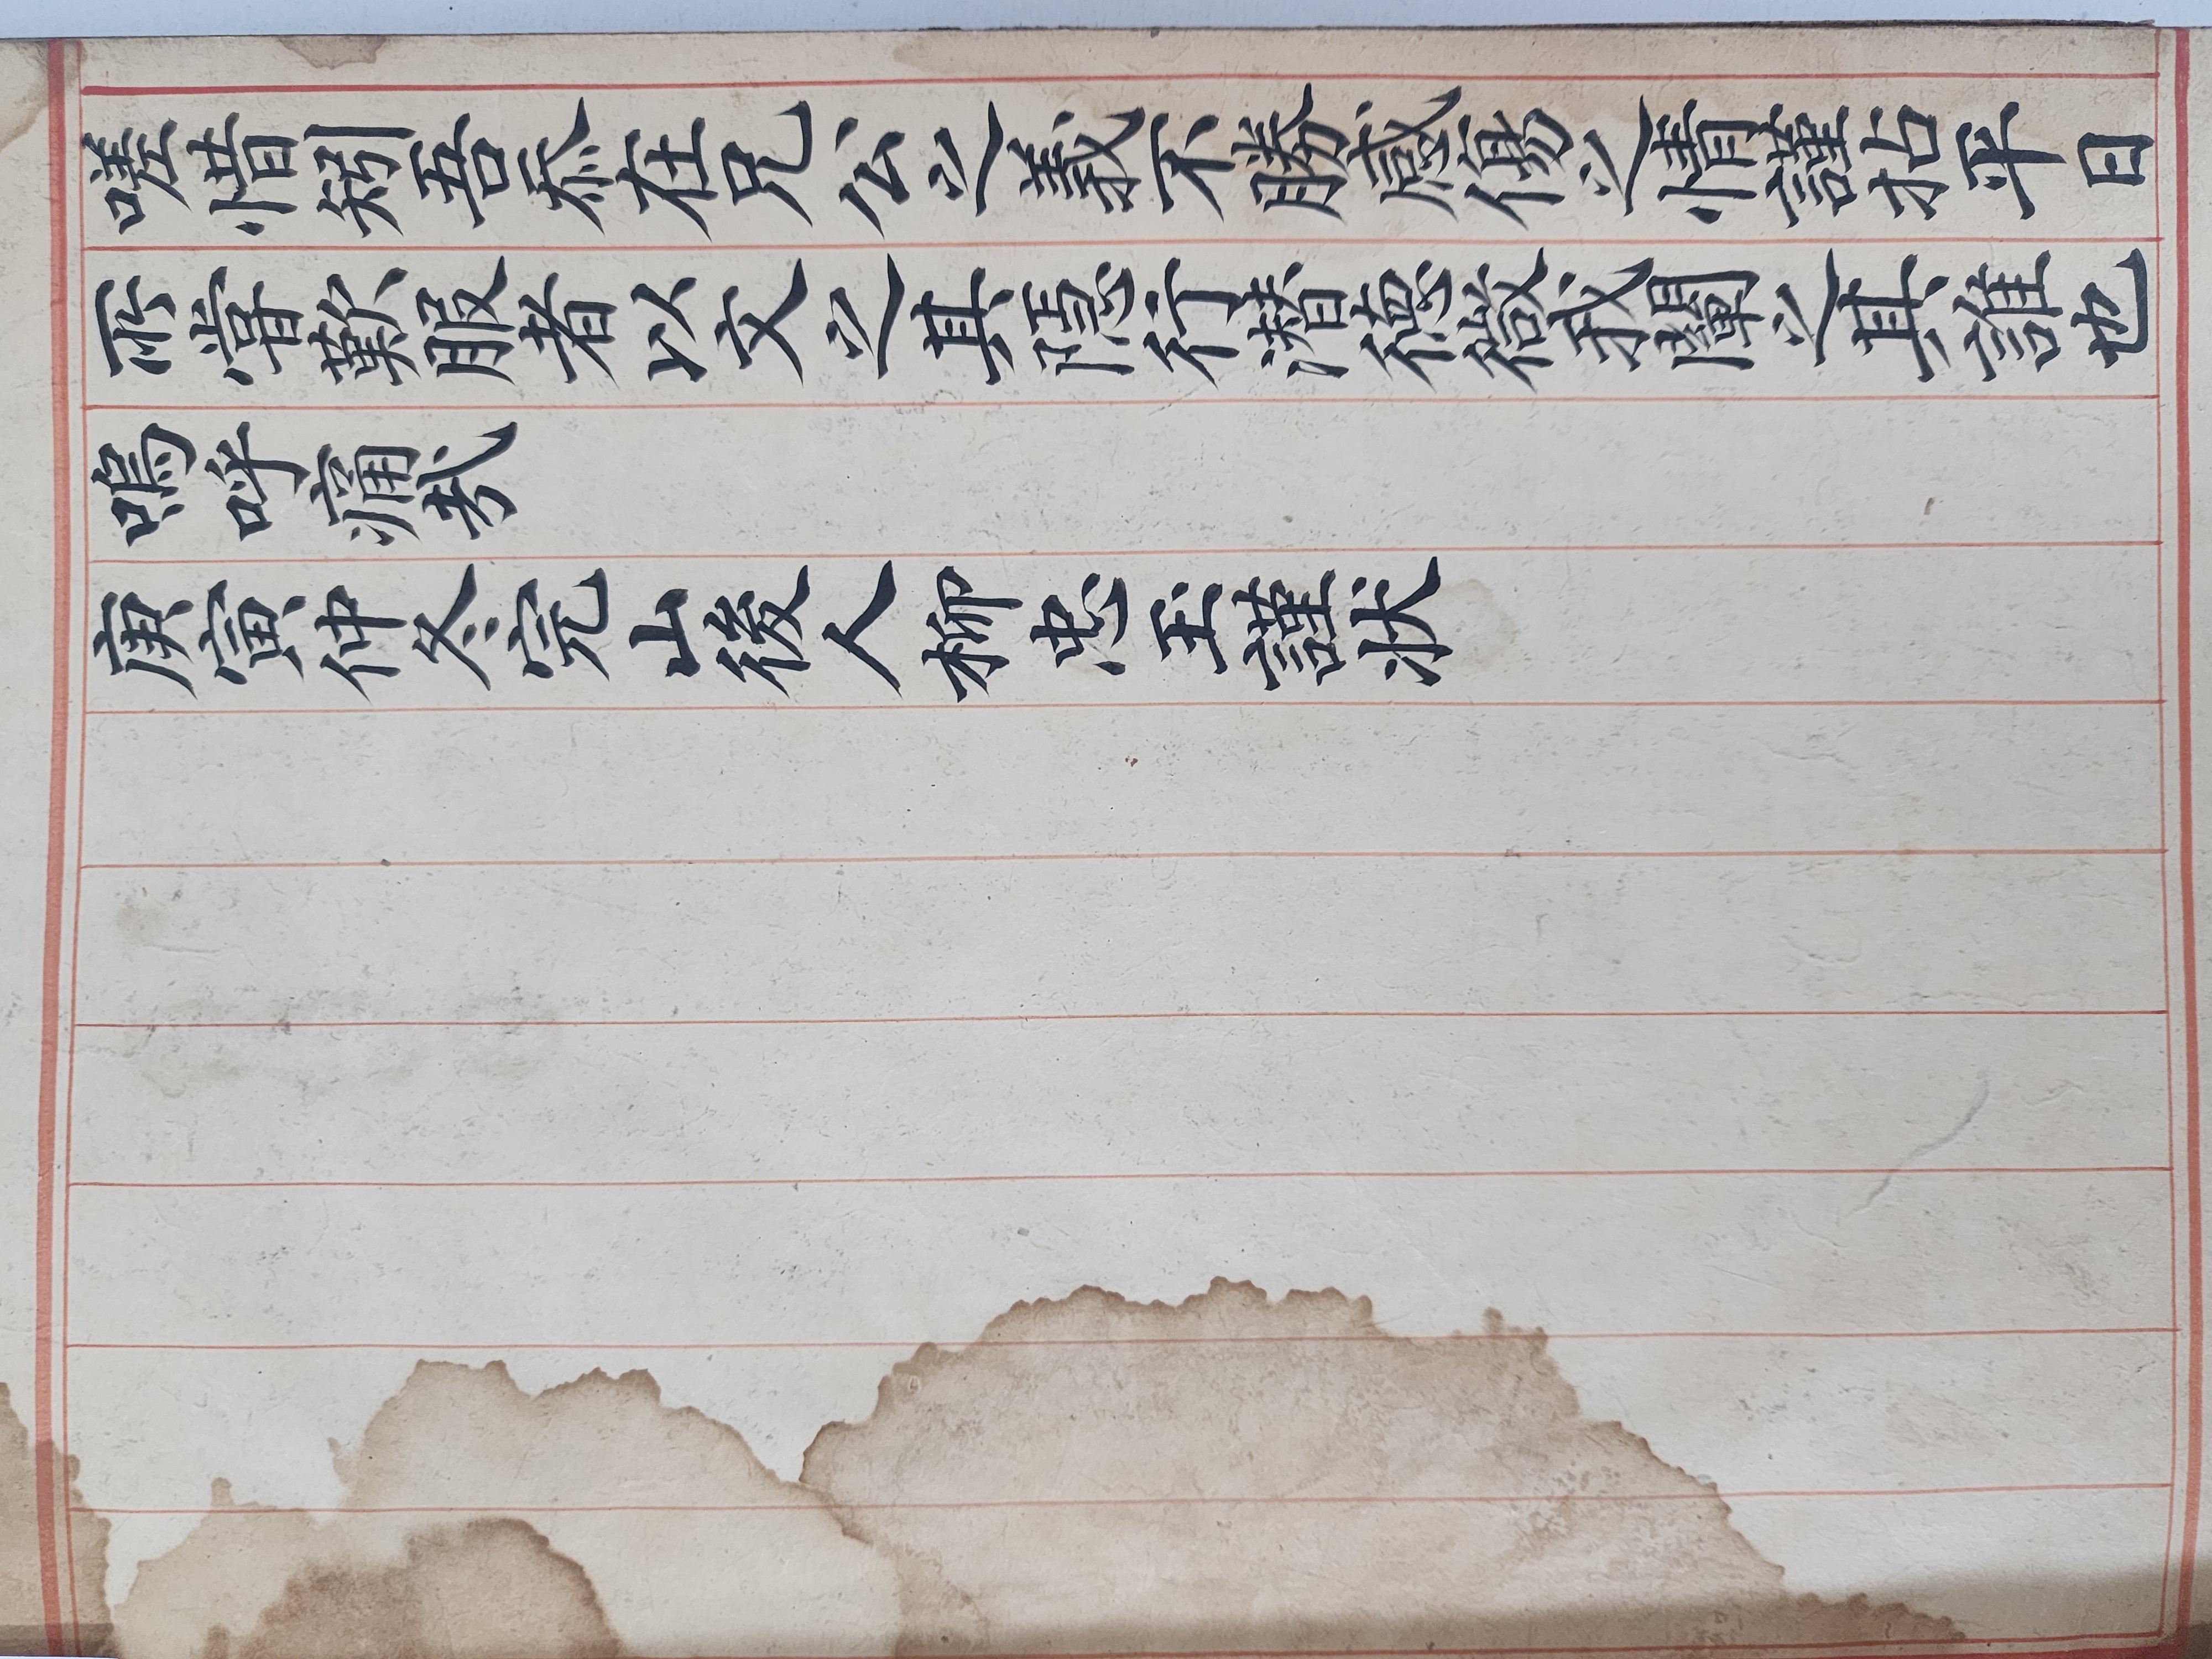 嗟惜矧吾忝在兄公之義不勝感傷之情謹拈平日
所嘗歎服者以文之其隱行潛德微我闡之其誰也
嗚呼痛哉
庚寅仲冬完山後人柳忠玉謹狀